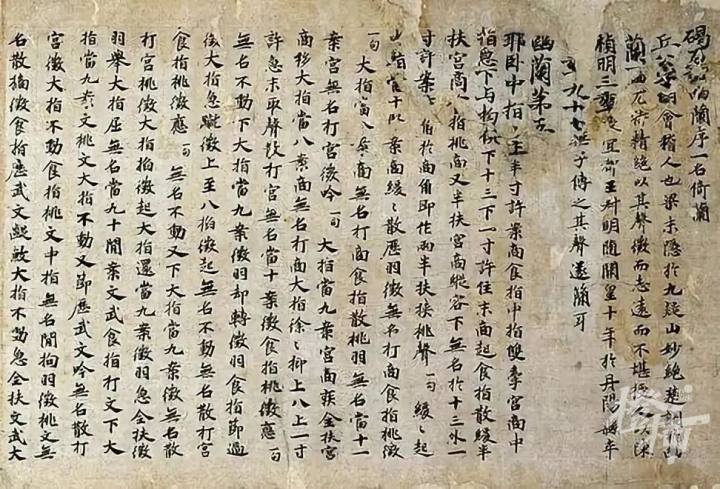 碣石調幽蘭序一名倚蘭
丘公字明會稽人也梁末隱於九疑山妙絕楚調
蘭一尤特精絕以其聲微而志遠而不堪授人陳
禎明三年宜都王叔明隨開皇十年於丹陽縣卒
九十七無子傳之其聲遂簡耳
幽蘭第五
耶臥中指上半寸許案商食指中指雙牽宮商中
指急下与构俱下十三下一寸許住末商起食指散緩半
扶宮商指挑商又半扶宮商縱容下無名於十三外一
寸許案角於商角即作兩半扶挾挑聲一句緩緩起
案商緩緩散歷羽徵無名打商食指挑徵
一句大指當八案商無名打商食指散挑羽無名當十一
案宮無名打宮徐吟一句大指當九案宮商疾全扶宮
商移大指當八案商無名打商大指徐徐抑上八上一寸
許急末取聲散打宮無名當十案徵食指挑徵應一句
無名不動下大指當九案徵羽却轉徵羽食指節過
徐大指急蹴徵上至八抽徵起無名不動無名散打宮
食指挑徵應一句無名不動又下大指當九案徵無名散
打宮挑徵大指掐徵起大指還當九案徵羽急全扶徵
羽舉大指屈無名當九十間案文武食指打文下大
指當九案文挑文大指不動又節歷武文吟無名散打
宮徵大指不動食指挑文中指無名間拘羽徵挑文無
名散摘徵食指歷武文大指不動急全扶文武大